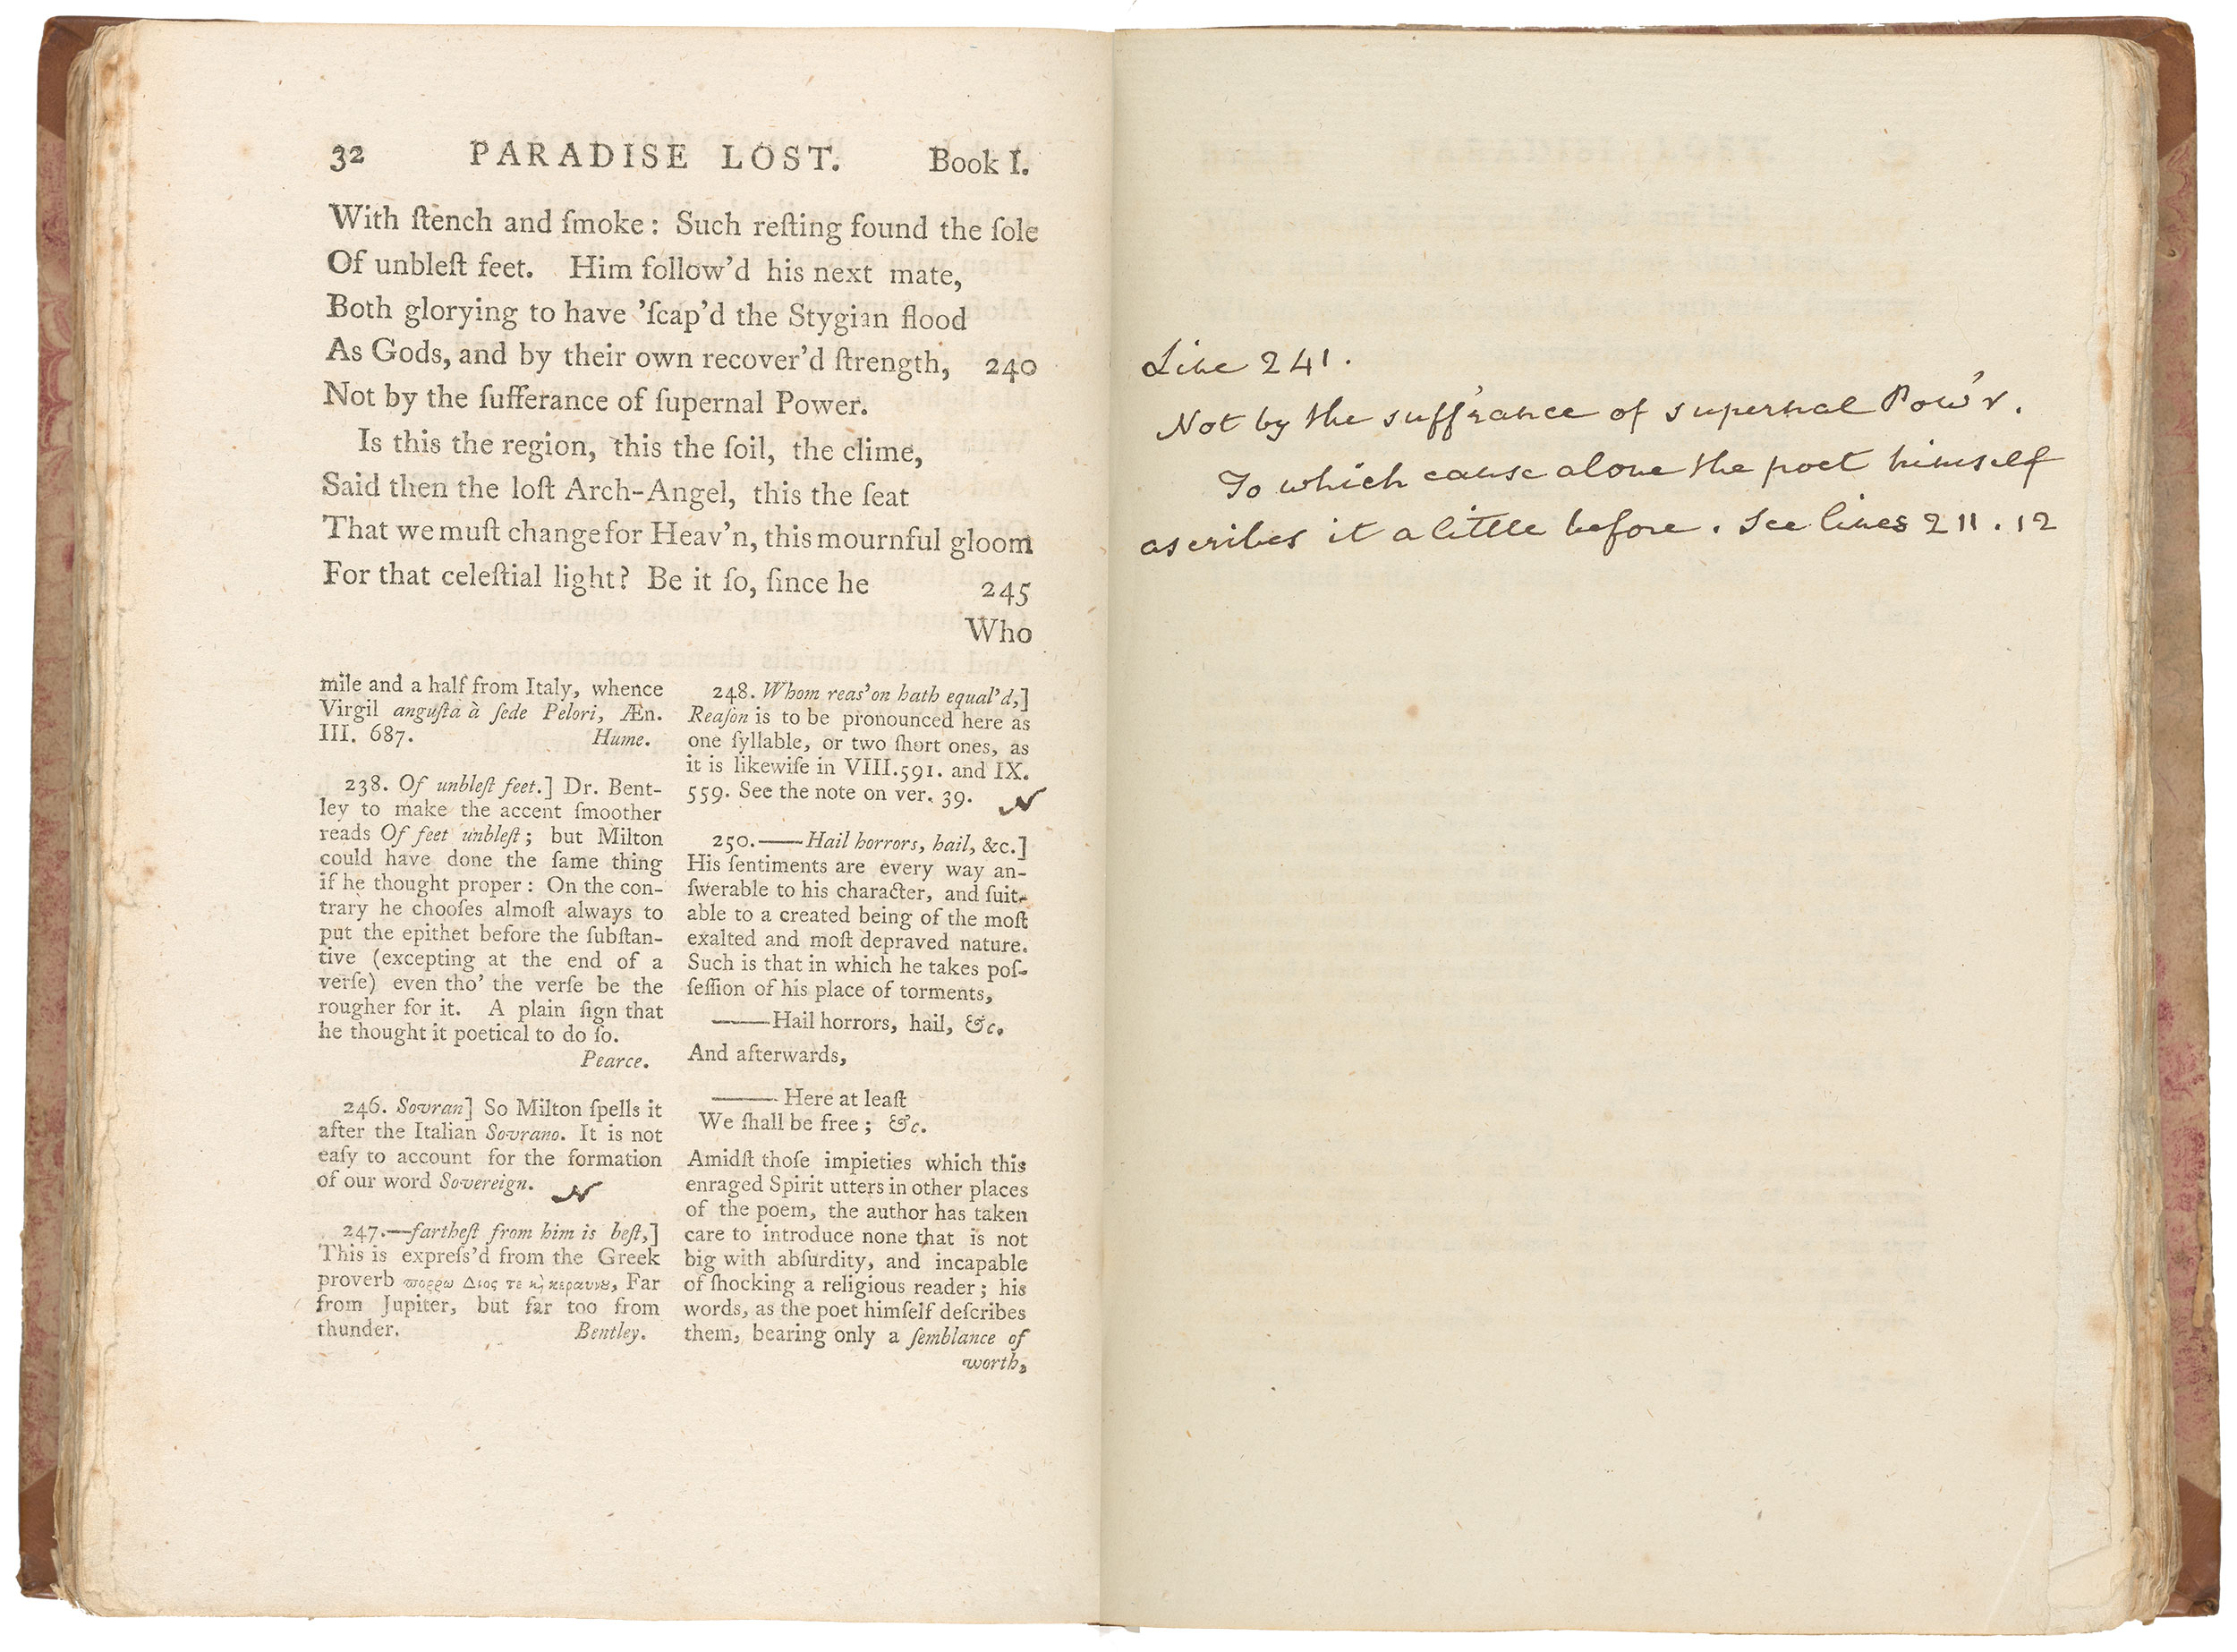 32 PARADISE LOST. Book I.
With ſtench and ſmoke: Such reſting found the ſole
Of unbleſt feet. Him follow'd his next mate,
Both glorying to have 'ſcap'd the Stygian flood
As Gods, and by their own recover'd ſtrength, 240
Not by the ſufferance of ſupernal Power.
Is this the region, this the ſoil, the clime,
Said then the loſt Arch-Angel, this the ſeat
That we muſt change for Heav'n, this mournful gloom
For that celeſtial light? Be it ſo, ſince he 245
Who
mile and a half from Italy, whence
Virgil anguſta à ſede Pelori, Æn.
III. 687. Hume.
238. Of unbleſt feet.] Dr. Bent-
ley to make the accent ſmoother
reads Of feet unbleſt; but Milton
could have done the ſame thing
if he thought proper: On the con-
trary he chooſes almoſt always to
put the epithet before the ſubſtan-
tive (excepting at the end of a
verſe) even tho' the verſe be the
rougher for it. A plain ſign that
he thought it poetical to do ſo.
Pearce.
246. Sovran] So Milton ſpells it
after the Italian Sovrano. It is not
eaſy to account for the formation
of our word Sovereign. N
247.—fartheſt from him is beſt,]
This is expreſs'd from the Greek
proverb πορρω Διος τε ϗ κεραυνȣ, Far
from Jupiter, but far too from
thunder. Bentley.
248. Whom reas'on hath equal'd,]
Reaſon is to be pronounced here as
one ſyllable, or two ſhort ones, as
it is likewiſe in VIII.591. and IX.
559. See the note on ver. 39. N
250.——Hail horrors, hail, &c.]
His ſentiments are every way an-
ſwerable to his character, and ſuit-
able to a created being of the moſt
exalted and moſt depraved nature.
Such is that in which he takes poſ-
ſeſſion of his place of torments,
——Hail horrors, hail, &c.
And afterwards,
——Here at leaſt
We ſhall be free; &c.
Amidſt thoſe impieties which this
enraged Spirit utters in other places
of the poem, the author has taken
care to introduce none that is not
big with abſurdity, and incapable
of ſhocking a religious reader; his
words, as the poet himſelf deſcribes
them, bearing only a ſemblance of
worth,
Line 241.
Not by the suff'rance of supernal Pow'r.
To which cause alone the poet himself
ascribes it a little before. See lines 211.12